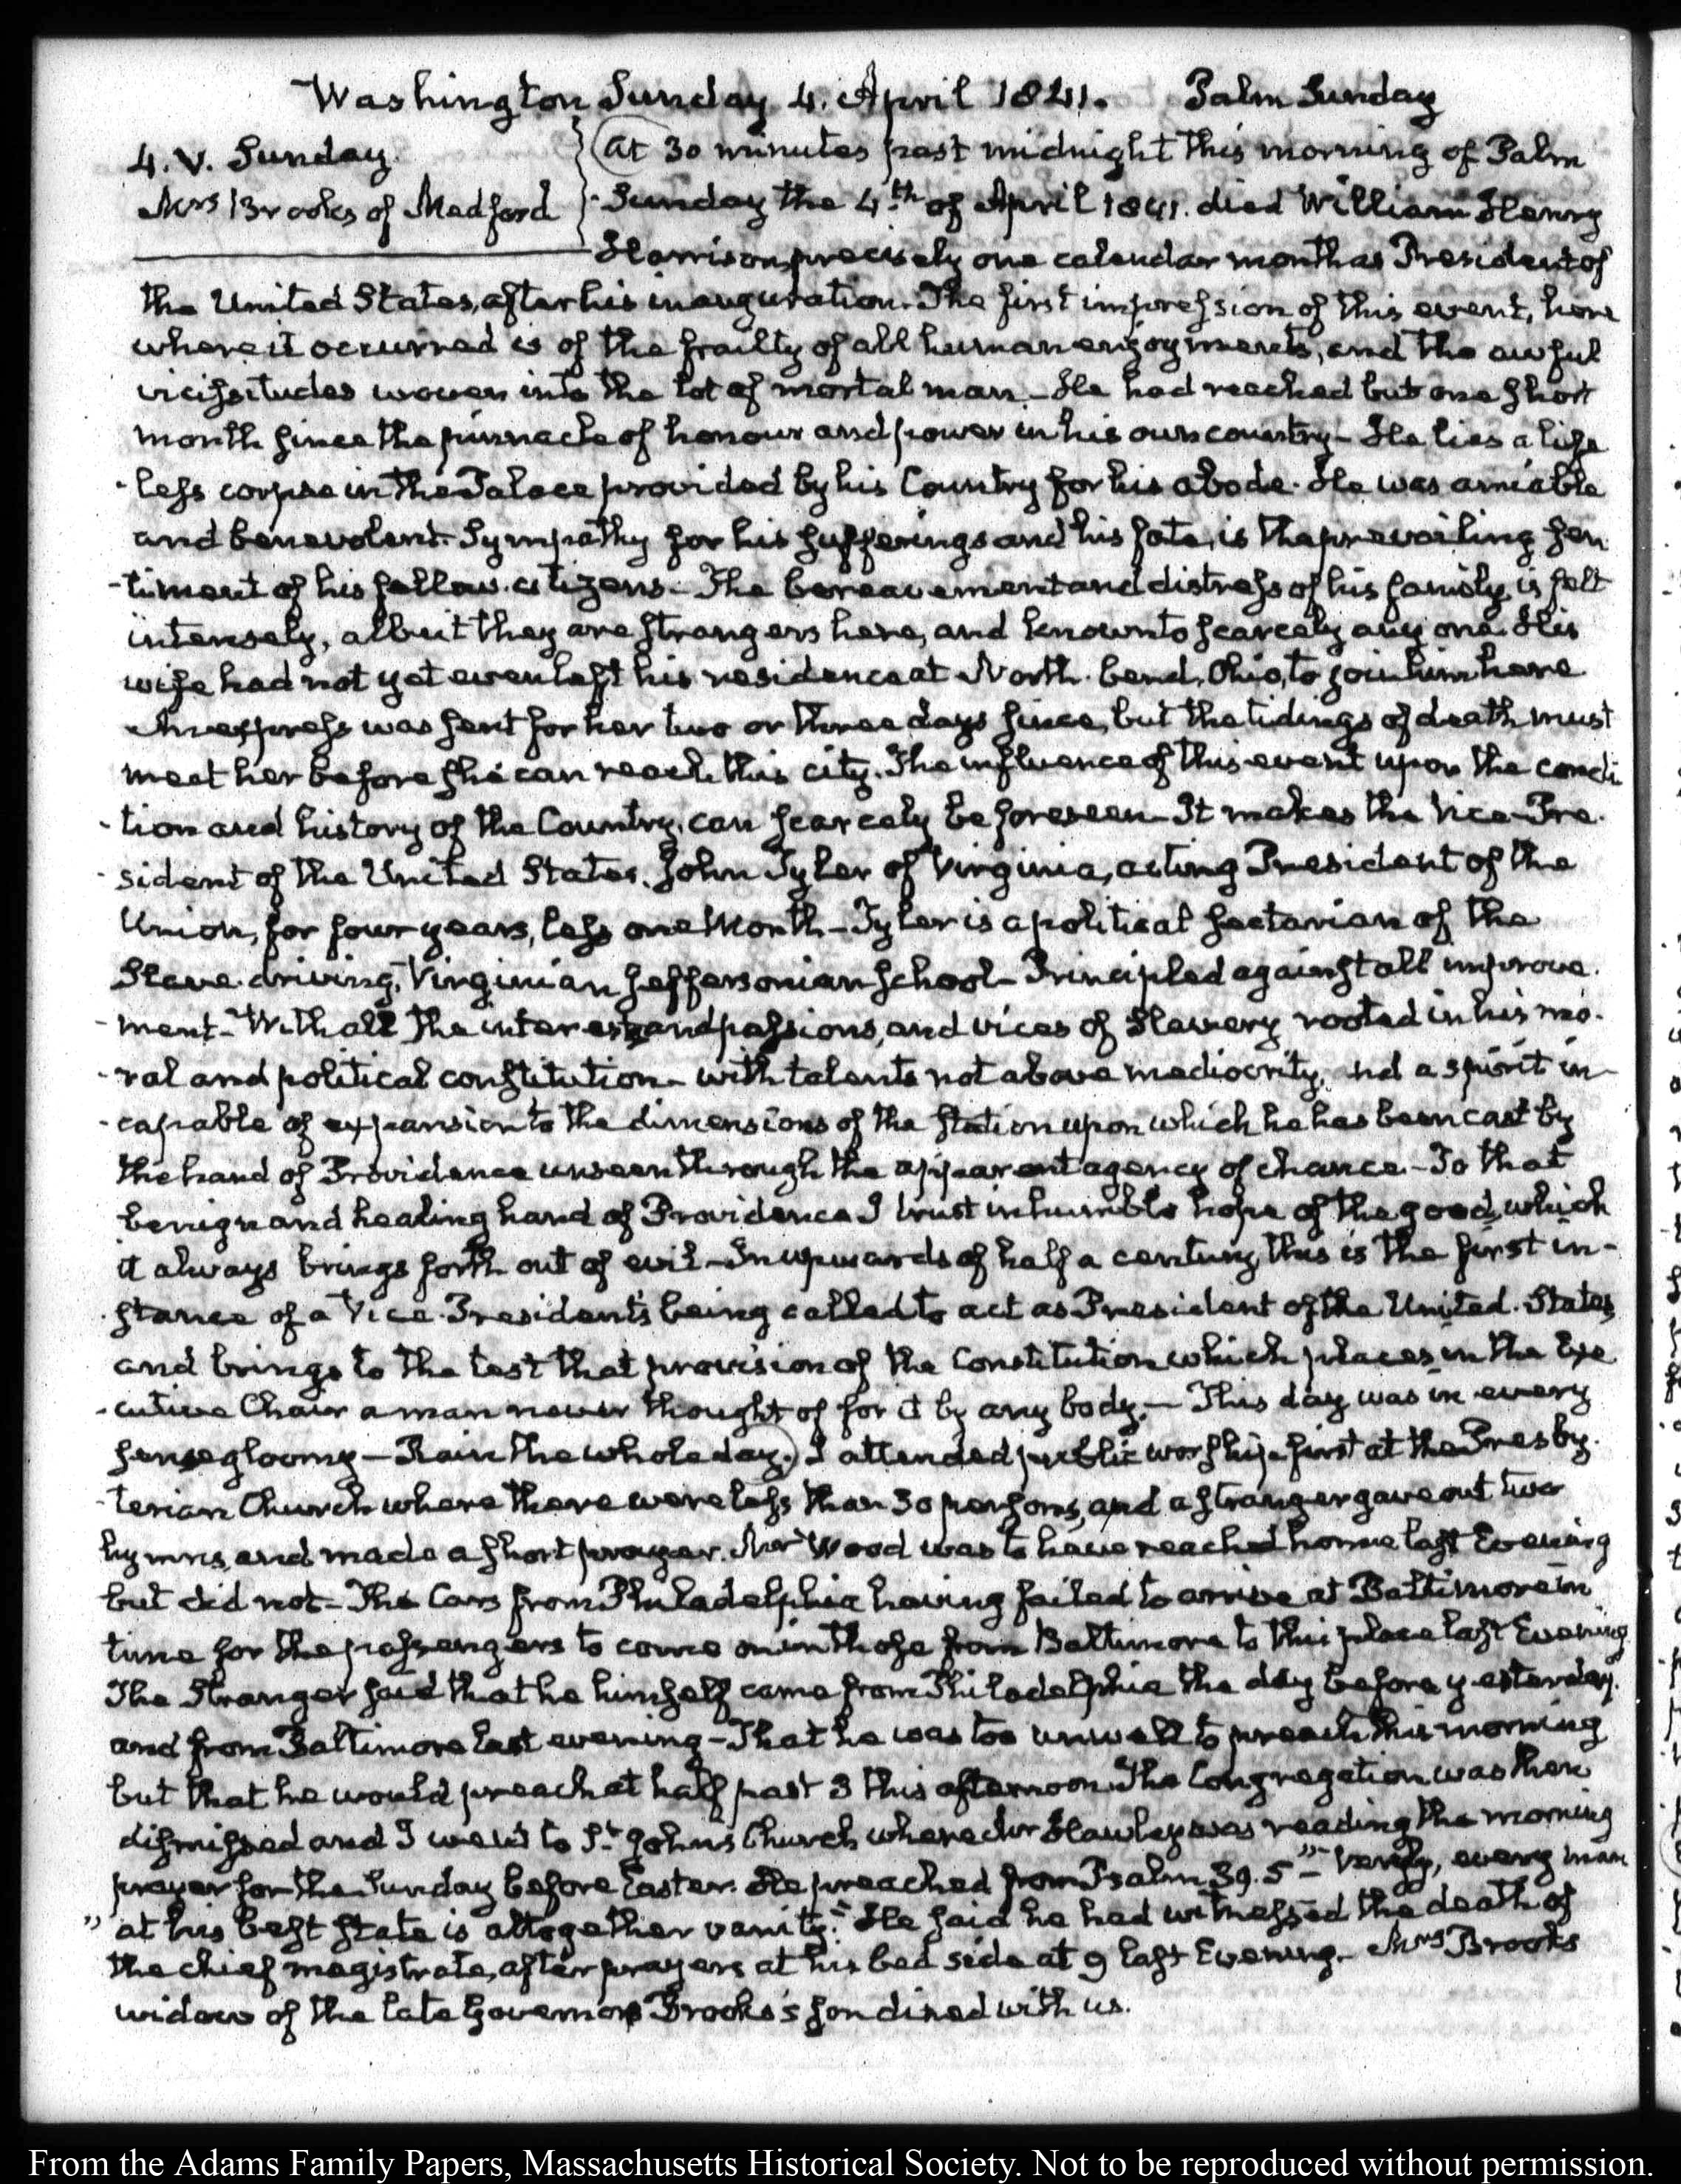 Washington Sunday 4. April 1841. Palm Sunday
4. V. Sunday.
Mrs Brooks of Medford
At 30 minutes past midnight this morning of Palm
Sunday the 4th of April 1841. died William Henry
Harrison, precisely one calendar month as President of
the United States, after his inauguration. The first impression of this event, here
where it occurred is of the frailty of all human enjoyments, and the awful
vicissitudes woven into the lot of mortal man. – He had reached but one short
month since the pinnacle of honour and power in his own country – He lies a life
-less corpse in the Palace provided by his Country for his abode. He was amiable
and benevolent. Sympathy for his sufferings and his fate, is the prevailing sen
-timent of his fellow-citizens – The bereavement and distress of his family is felt
intensely, albeit they are strangers here, and known to scarcely any one. His
wife had not yet even left his residence at North-bend, Ohio, to join him here
An express was sent for her two or three days since, but the tidings of death must
meet her before she can reach this city. The influence of this event upon the condi
-tion and history of the Country, can scarcely be foreseen – It makes the Vice-Pre-
-sident of the United States, John Tyler of Virginia, acting President of the
Union, for four years, less one Month – Tyler is a political sectarian of the
Slave-driving, Virginian Jeffersonian School – Principled against all improve-
-ment – With all the interests and passions, and vices of Slavery rooted in his mo-
-ral and political constitution – with talents not above mediocrity, and a spirit in-
-capable of expansion to the dimensions of the station upon which he has been cast by
the hand of Providence unseen through the apparent agency of chance – To that
benign and healing hand of Providence I trust in humble hope of the good, which
it always brings forth out of evil – In upwards of half a century, this is the first in-
-stance of a Vice-President's being called to act as President of the United States,
and brings to the test that provision of the Constitution which places in the Exe
-cutive Chair a man never thought of for it by any body. – This day was in every
sense gloomy – Rain the whole day. I attended public worship first at the Presby-
-terian Church where there were less than 30 persons, and a stranger gave out two
hymns, and made a short prayer. Mr Wood was to have reached home last Evening
but did not – The Cars from Philadelphia having failed to arrive at Baltimore in
time for the passengers to come on in those from Baltimore to this place last Evening
The Stranger said that he himself came from Philadelphia the day before yesterday,
and from Baltimore last evening – That he was too unwell to preach this morning
but that he would preach at half past 3 this afternoon. The Congregation was then
dismissed and I went to St Johns Church where Mr Hawley was reading the morning
prayer for the Sunday before Easter. He preached from Psalm 39. 5 "– Verily, every man
"at his best state is altogether vanity." He said he had witnessed the death of
the chief magistrate, after prayers at his bed side at 9 last Evening. – Mrs Brooks
widow of the late Governor Brooks's son dined with us.
From the Adams Family Papers, Massachusetts Historical Society. Not to be reproduced without permission.